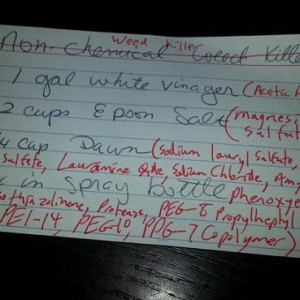 Weed Killer
Non-Chemical Weed Kille
1 gal white vinager (Acetic
2 cups Epson Salt (magnes
sulfat
1/4 cup Dawn (sodium lauryl sulfate,
Sulfate, Lauramine Oxide, Sodium Chloride,
in Spray bottle Phenoxye
Protease, PEG-8 Propylheptyl
PEI-14, PEG-10, PPG-7 Copolymer)